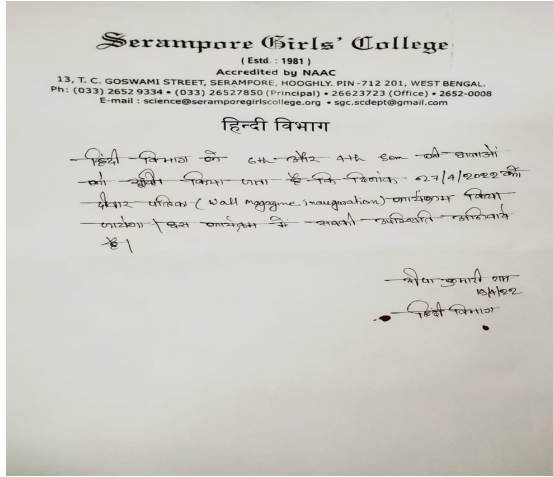 Serampore Girls' College
( Estd. : 1981 )
Accredited by NAAC
13, T. C. GOSWAMI STREET, SERAMPORE, HOOGHLY. PIN -712 201, WEST BENGAL.
Ph: (033) 2652 9334 • (033) 26527850 (Principal) • 26623723 (Office) • 2652-0008
E-mail : science@seramporegirlscollege.org • sgc.scdept@gmail.com
हिन्दी विभाग
हिंदी विभाग के 6th और 4th Sem की छात्राओं
को सूचित किया जाता है कि दिनांक 27/4/2022 को
दीवार पत्रिका ( Wall Magazine inauguration) कार्यक्रम किया
जायेगा | इस कार्यक्रम में सबकी उपस्थिति अनिवार्य
है |
कुमारी राम
/4/22
हिंदी विभाग